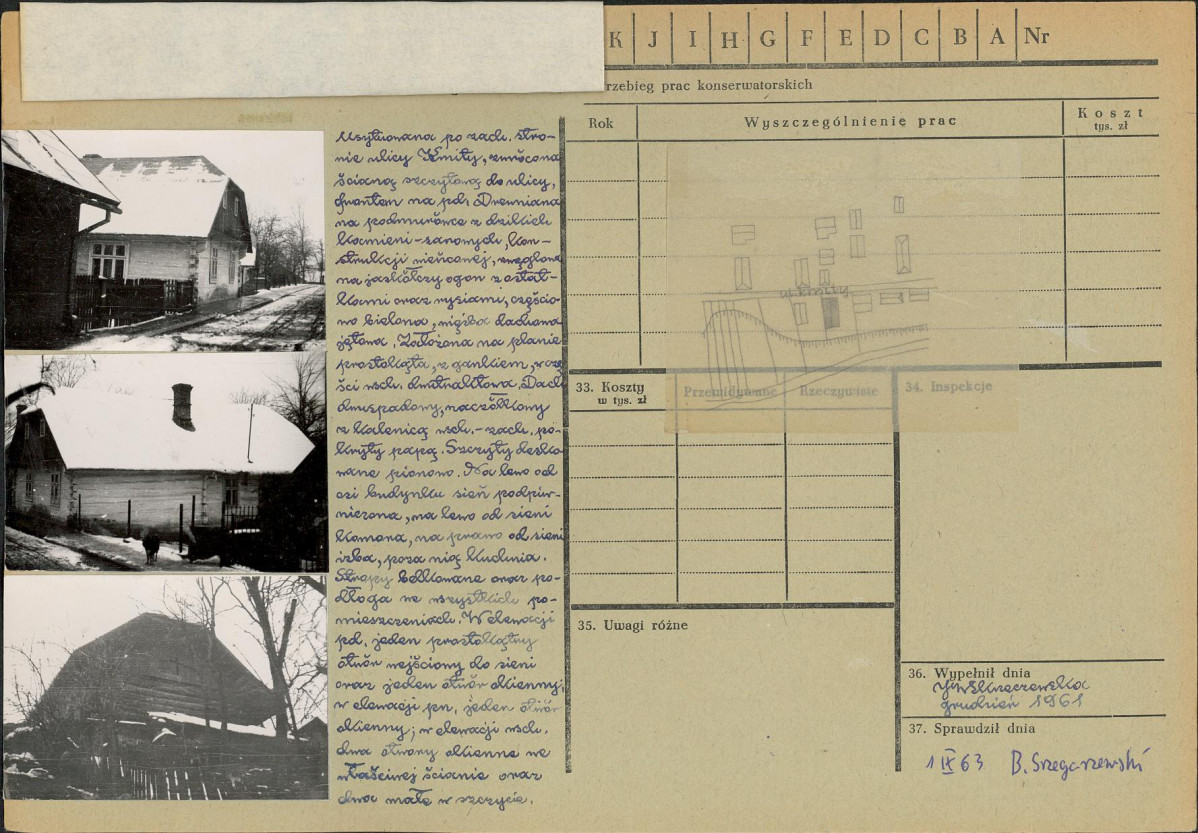 K J I H G F E D C B A Nr
rzebieg prac konserwatorskich
Rok
Wyszczególnienie prac
Koszt
tys. zł
Usytuowana po zach. stro-
nie ulicy Kmity, zwrócona
ścianą szczytową do ulicy,
frontem na pd. Drewniana
na podmurówce z dzikich
kamieni-zanonych, kon-
strukcji wieńcowej, zwęglona
na jaskółczy ogon z ostat-
kami oraz rysiami, częścio-
wo bielona, więźba dachowa
jętowa. Założona na planie
prostokąta, z gankiem, w czę
ści wsch. dwutraktowa. Dach
dwuspadowy, naczółkowy
z kalenicą wsch.-zach. po-
kryty papą. Szczyty desko
wane pionowo. Na lewo od
osi budynku sień podpiw-
niczona, na lewo od sieni
komora, na prawo od sieni
izba, poza nią kuchnia.
Stropy belkowane oraz po-
dłoga we wszystkich po-
mieszczeniach. W elewacji
pd. jeden prostokątny
otwór wejściowy do sieni
oraz jeden otwór okienny;
w elewacji pn. jeden otwór
okienny; w elewacji wsch.
dwa otwory okienne we
właściwej ścianie oraz
dwa małe w szczycie.
ul. Kmity
33. Koszty
w tys. zł
Przewidywane
Rzeczywiste
34. Inspekcje
35. Uwagi różne
36. Wypełnił dnia
grudzień 1961
37. Sprawdził dnia
1 IX 63 B. Szegarzewski